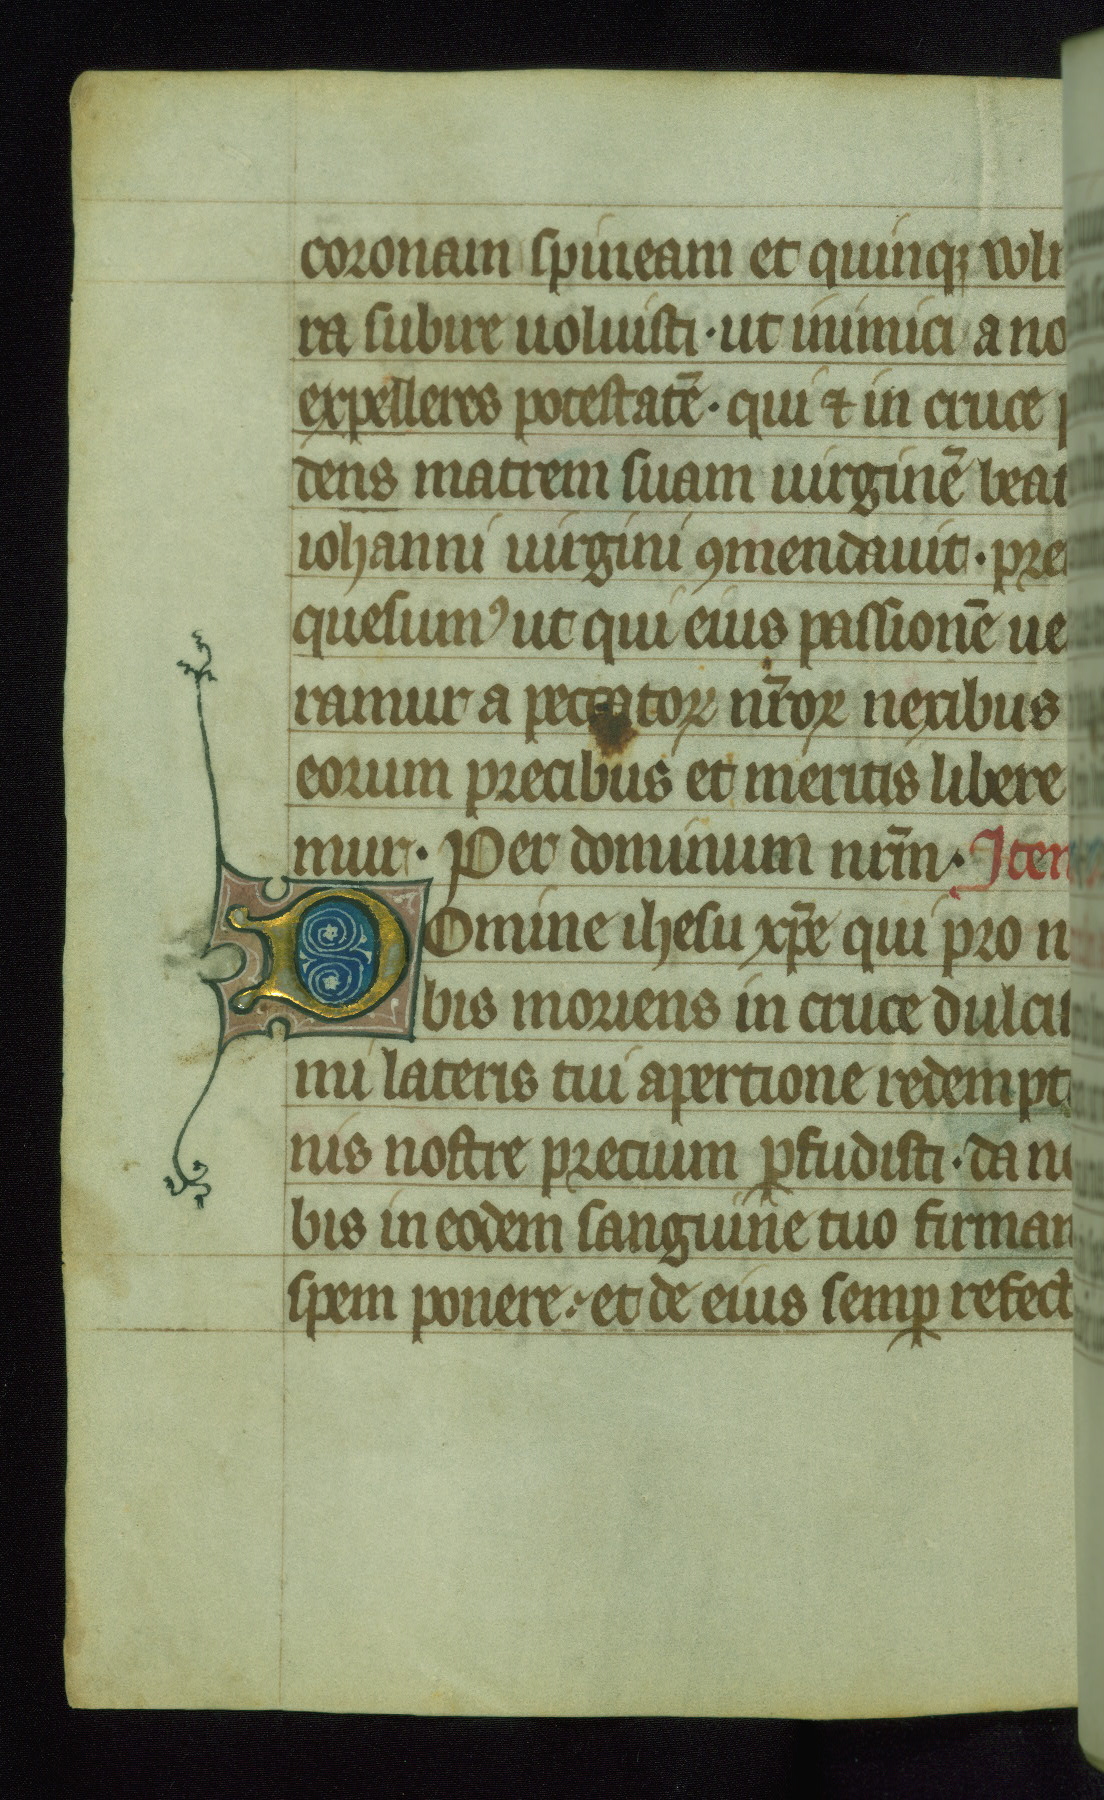 coronam spineam et quinqꝫ wln
ra subire uoluisti · ut inimici a no
expelleres potestatē · qui ⁊ in cruce p
dens matrem suam uirginē beat
iohanni uirgini ꝯmendauit · pre
quesumꝰ ut qui eius passionē ue
ramur a peccatoꝝ nr̄oꝝ nexibus
eorum precibus et meritis libere
mur · Per dominum nr̄m · Item
Domine ihesu xp̄e qui pro n
bis moriens in cruce dulcis
mi lateris tui apertione redempt
nis nostre precium ꝑfudisti · da no
bis in eodem sanguine tuo firmam
spem ponere · et de eius semꝑ refect